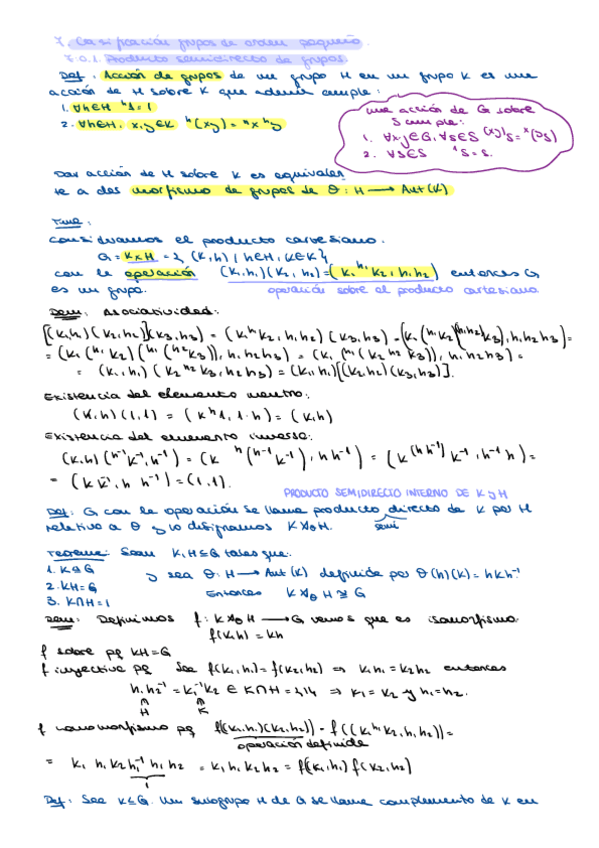 7. Clasificación grupos de orden pequeño.
7.0.1. Producto semidirecto de grupos.
Def: Acción de grupos de un grupo H en un grupo K es una
acción de H sobre K que además cumple:
1. ∀h∈H ʰ1=1
2. ∀h∈H, x,y∈K ʰ(xy)=ʰxʰy
una acción de G sobre
S cumple:
1. ∀x,y∈G, ∀s∈S ⁽ˣʸ⁾s=ˣ(ʸs)
2. ∀s∈S ¹s=s.
Dar acción de H sobre K es equivalen
te a dar morfismo de grupos de θ: H → Aut(K)
Tma:
Consideramos el producto cartesiano.
G = K×H = {(k,h) | h∈H, k∈K}
con la operación (k₁,h₁)(k₂,h₂)=(k₁ʰ¹k₂,h₁h₂) entonces G
es un grupo. operación sobre el producto cartesiano
Dem: Asociatividad:
[(k₁h₁)(k₂,h₂)](k₃,h₃) = (k₁ʰ¹k₂,h₁h₂)(k₃,h₃) = (k₁(ʰ¹k₂)⁽ʰ¹ʰ²⁾k₃),h₁h₂h₃)=
= (k₁(ʰ¹k₂)(ʰ¹(ʰ²k₃)),h₁h₂h₃) = (k₁(ʰ¹(k₂ʰ²k₃)),h₁h₂h₃) =
= (k₁,h₁)(k₂ʰ²k₃,h₂h₃) = (k₁,h₁)[(k₂h₂)(k₃,h₃)].
Existencia del elemento neutro:
(k,h)(1,1) = (kʰ1,1·h) = (k,h)
Existencia del elemento inverso:
(k,h)(ʰ⁻¹k⁻¹,h⁻¹) = (k ʰ(ʰ⁻¹k⁻¹),hh⁻¹) = (k⁽ʰʰ⁻¹⁾k⁻¹,h⁻¹h)=
= (kk⁻¹,hh⁻¹)=(1,1).
PRODUCTO SEMIDIRECTO INTERNO DE K y H
Def: G con la operación se llama producto directo de K por H
semi
relativo a θ y lo designamos K⋊θH.
Teorema: Sean K,H≤G tales que:
1. K⊴G
2. KH=G
3. K∩H=1
y sea θ: H → Aut(K) definida por θ(h)(k)=hkh⁻¹
Entonces K⋊θH ≅ G
Dem: Definimos f: K⋊θH → G vemos que es isomorfismo
f(k,h) = kh
f sobre pq KH=G
f inyectiva pq Sea f(k₁,h₁)=f(k₂,h₂) ⇒ k₁h₁=k₂h₂ entonces
h₁h₂⁻¹=k₁⁻¹k₂ ∈ K∩H={1} ⇒ k₁=k₂ y h₁=h₂.
H K
f homomorfismo pq f((k₁,h₁)(k₂,h₂)) = f((k₁ʰ¹k₂,h₁h₂))=
operación definida
= k₁h₁k₂h₁⁻¹h₁h₂ = k₁h₁k₂h₂ = f(k₁,h₁)f(k₂,h₂)
1
Def: Sea K≤G. Un subgrupo H de G se llama complemento de K en